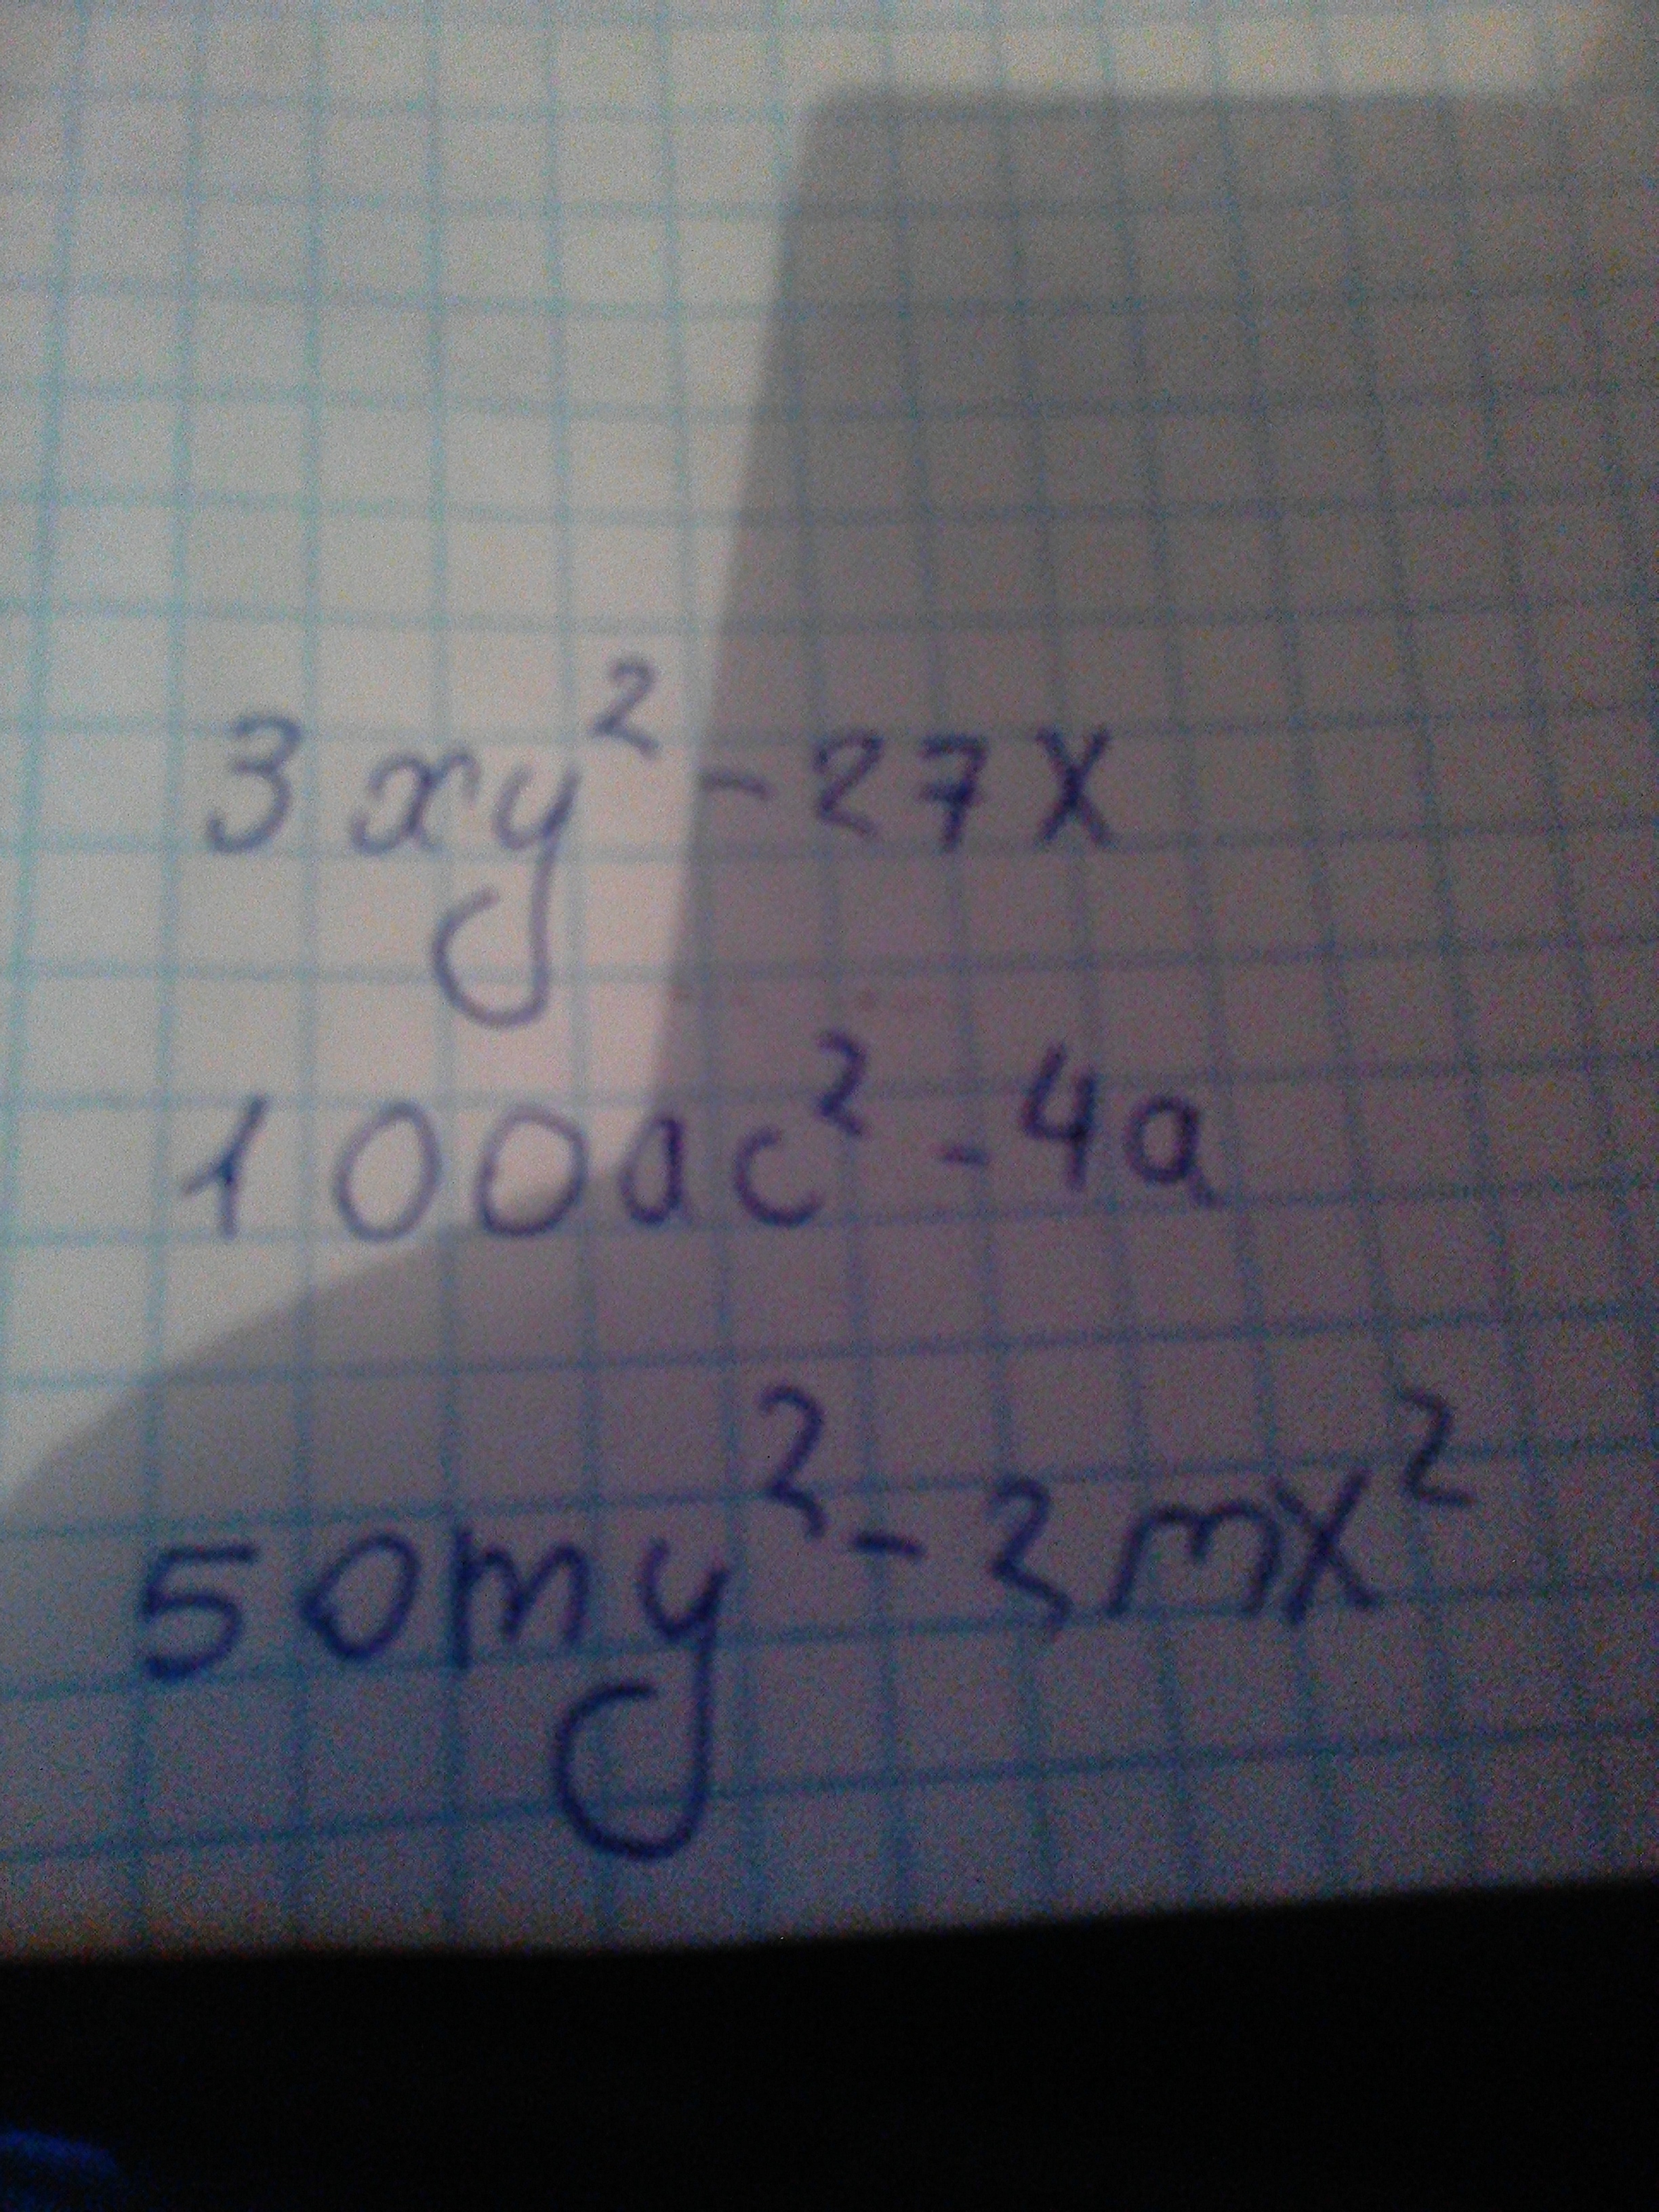 3xy² - 27x
100ac² - 4a
50my² - 2mx²